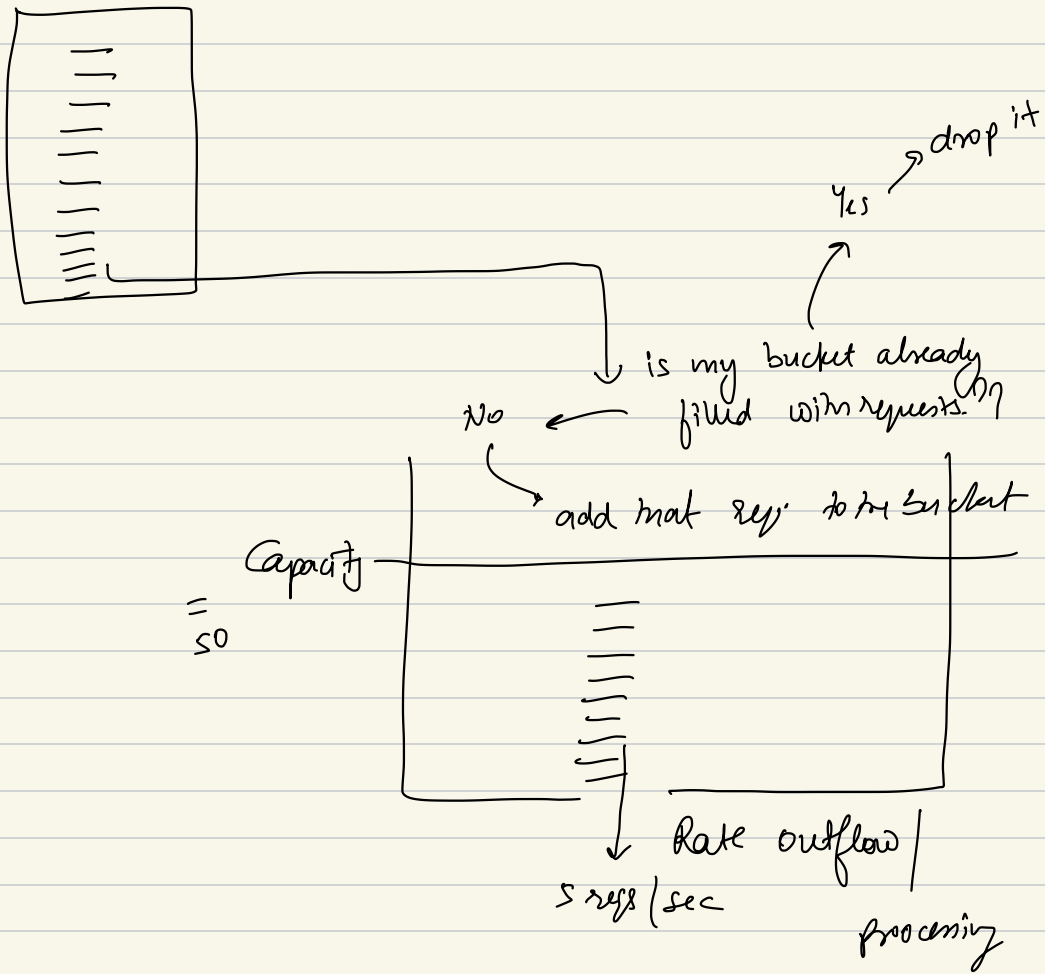 drop it
Yes
is my bucket already
filled with requests.??
No
add that req. to the bucket
Capacity
=
50
Rate outflow/
processing
5 reqs/sec